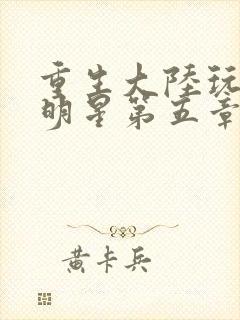 重生大陸玩
明星第五章
黄卡兵